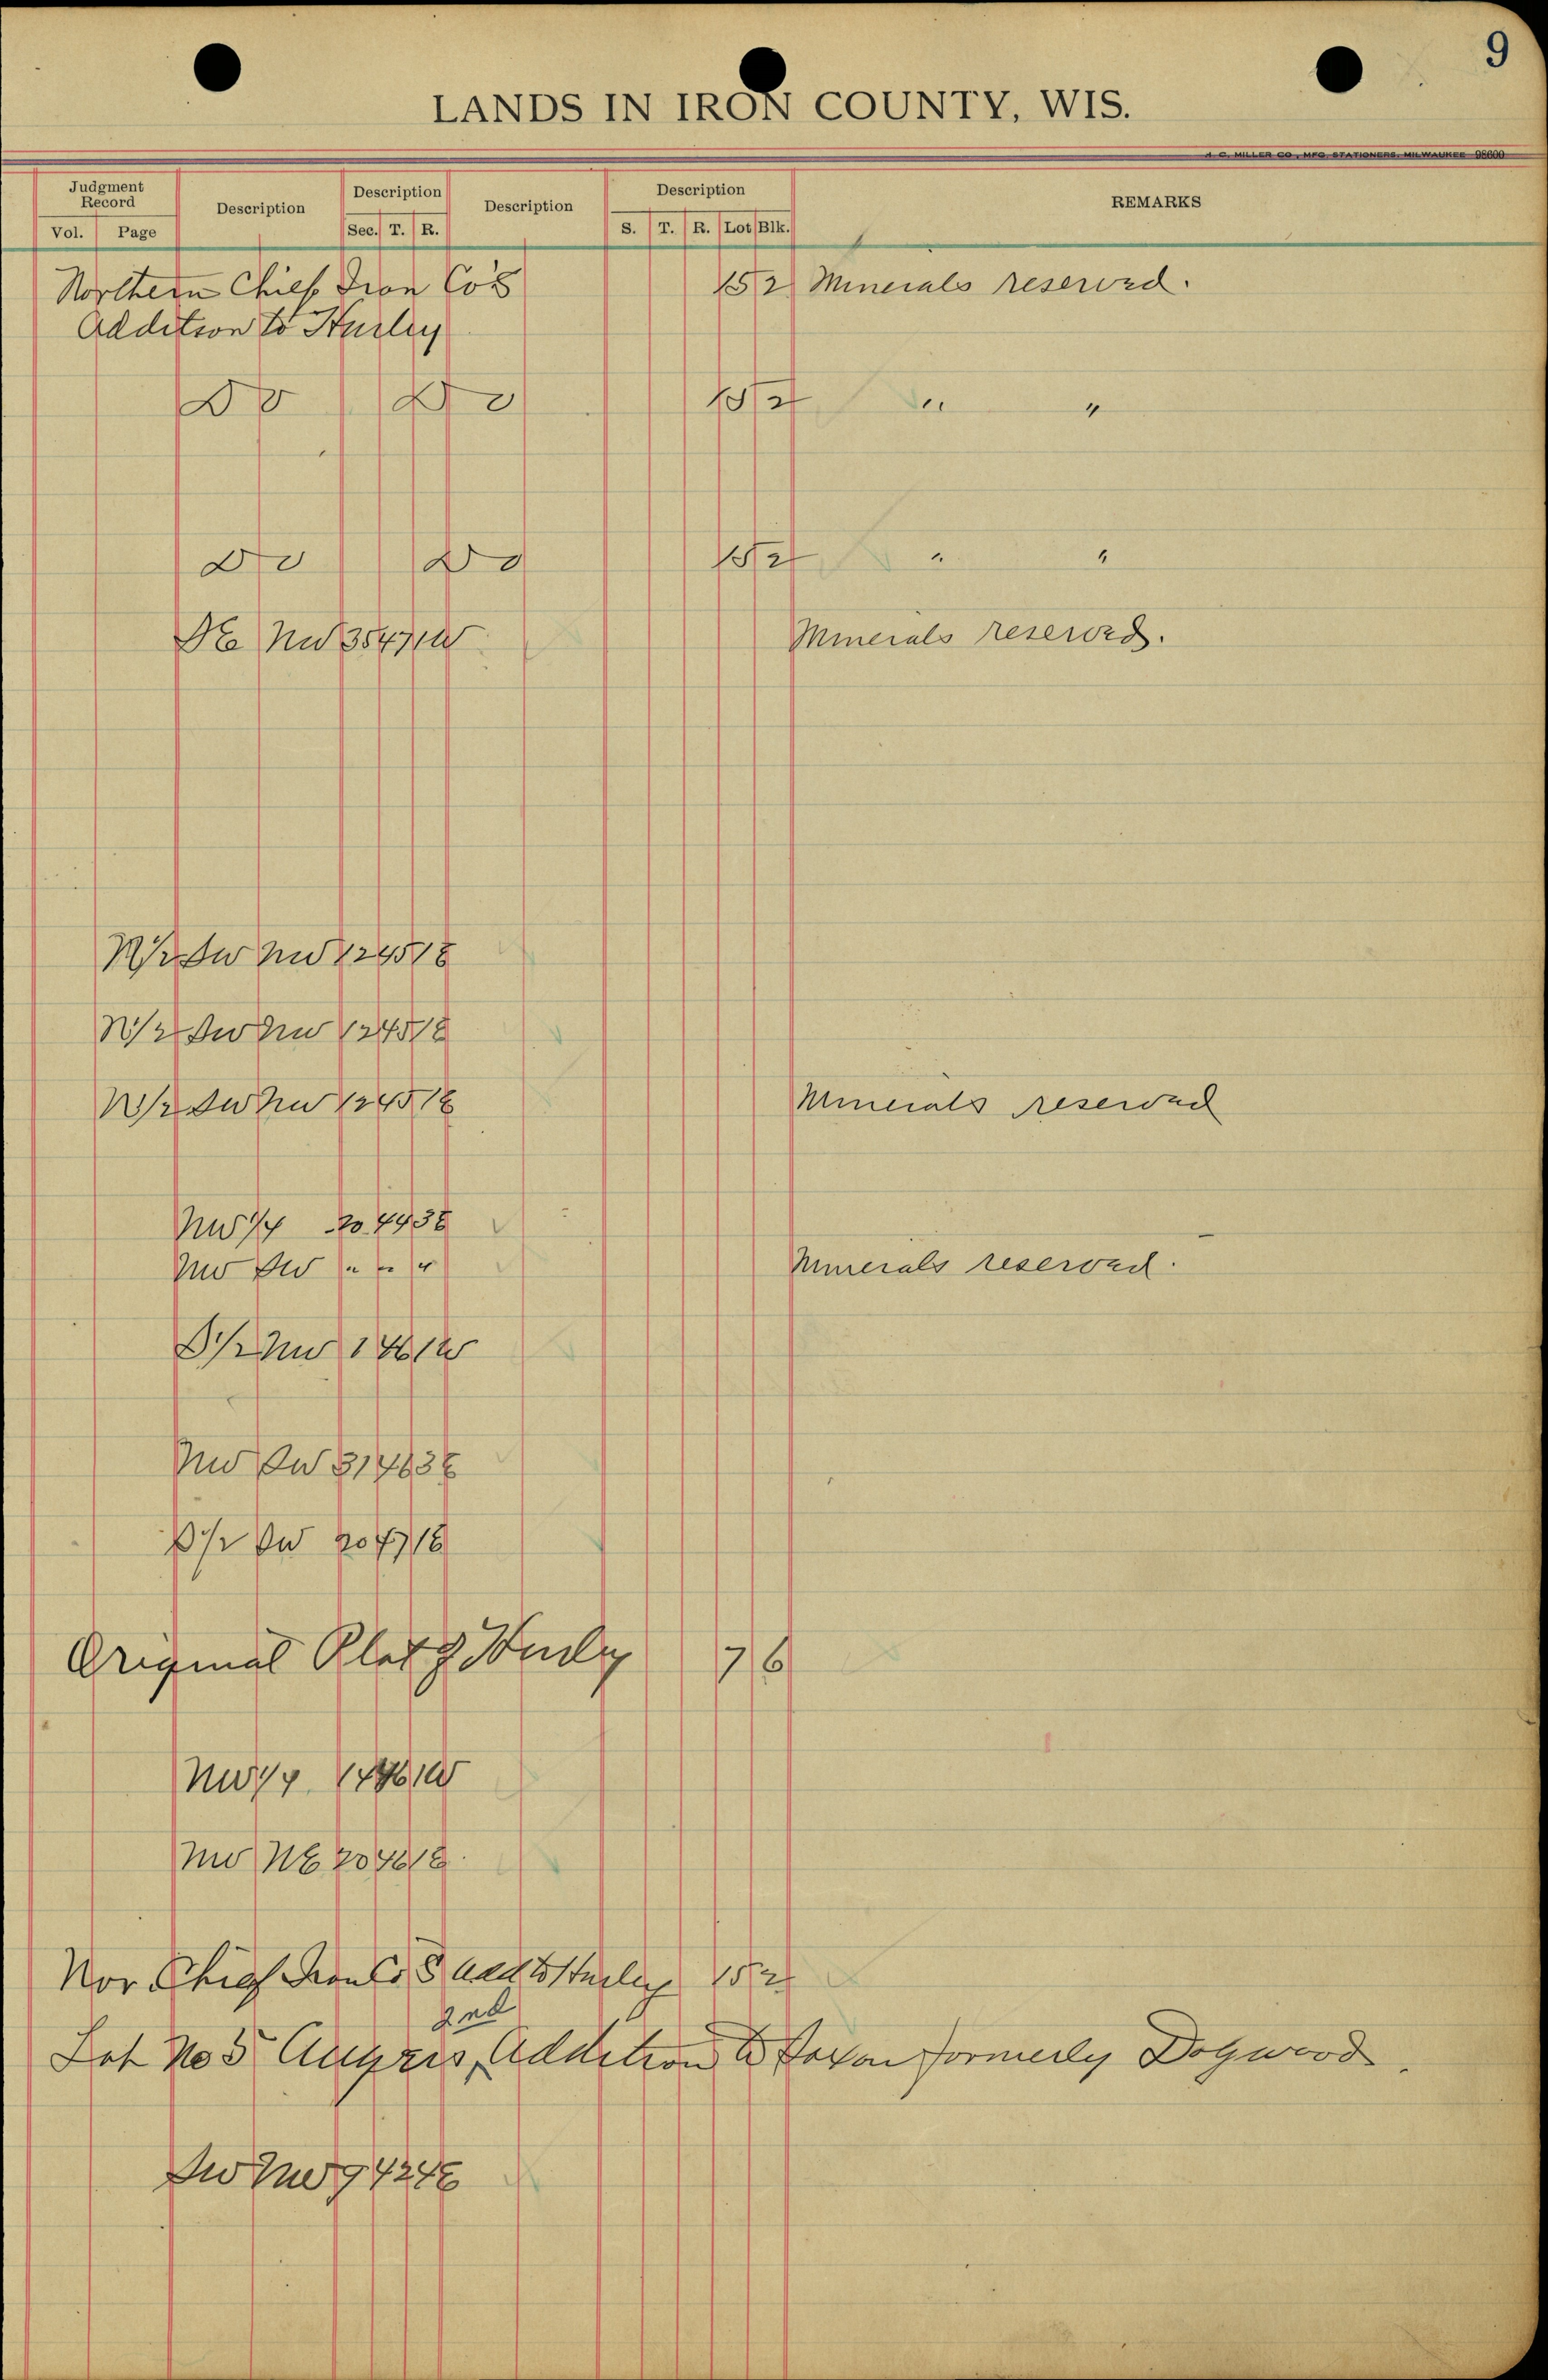 9
LANDS IN IRON COUNTY, WIS.
H. C. MILLER CO., MFG. STATIONERS, MILWAUKEE 98600
Judgment Record Description Description Description Description REMARKS
Vol. Page Sec. T. R. S. T. R. Lot Blk.
Northern Chief Iron Co's 15 2 Minerals reserved.
Addition to Hurley
Do Do 15 2 " "
Do Do 15 2 " "
NE NW 35 47 1W Minerals reserved.
W1/2 SW NW 12 45 1E
W1/2 SW NW 12 45 1E
W1/2 SW NW 12 45 1E Minerals reserved
NW1/4 20 44 3E
NW SW " " " Minerals reserved.
S1/2 NW 1 46 1W
NW SW 31 46 3E
S1/2 SW 20 47 1E
Original Plat of Hurley 7 6
NW1/4 14 46 1W
NW NE 20 46 1E.
Nor Chief Iron Co's Add to Hurley 15 2
2nd
Lot No 5 Addition to Saxon formerly Dogwood.
SW NW 9 42 4E